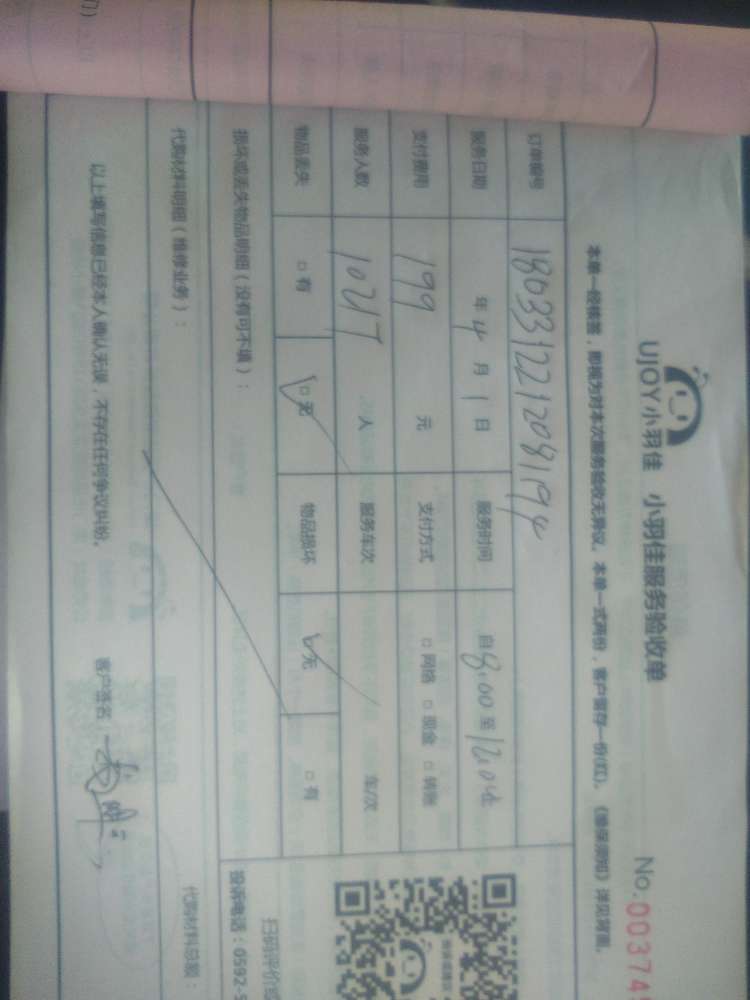 UJOY小羽佳 小羽佳服务验收单
No.003745
本单一经核签，即视为对本次服务验收无异议。本单一式两份，客户留存一份(红)。《维保须知》详见背面。
订单编号
服务日期 年 4 月 1 日 服务时间 自 8:00 至
支付费用 199 元 支付方式 □ 网络 □ 现金 □ 转账
服务人数 人 服务车次 车/次
物品丢失 □ 有 □ 无 物品损坏 □ 无 □ 有
损坏或丢失物品明细（没有可不填）：
扫码评价
投诉电话：0592-5
代购材料明细（维修业务）：
代购材料总额：
以上填写信息已经本人确认无误，不存在任何争议纠纷。 客户签名